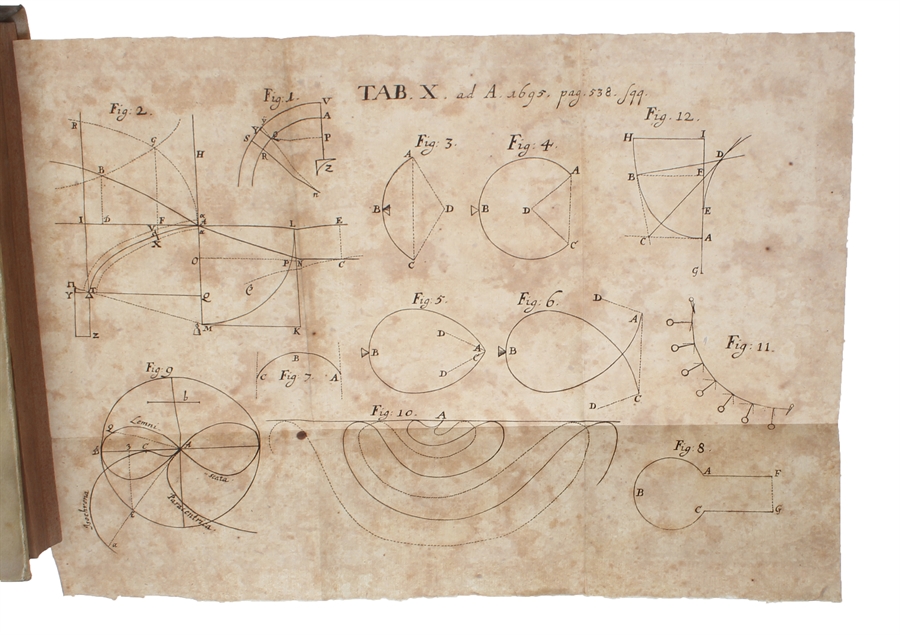 TAB. X. ad A. 1695. pag. 538. sqq.
Fig. 2.
R
G
H
B
I
D
F
A
L
E
V
X
O
P
N
C
H
Y
T
Q
Z
M
K
Fig. 1.
V
A
S
P
Q
R
Z
n
Fig: 3
A
B
D
C
Fig: 4.
A
B
D
C
Fig. 12.
H
I
D
B
F
E
C
A
G
Fig: 5.
D
B
A
C
D
Fig: 6.
D
A
B
C
D
Fig: 11.
Fig: 7.
B
C
A
Fig: 9
b
Lemni
Q
B
3
C
A
scata
Isochrona
Paracentrica
a
Fig: 10.
A
Fig: 8
A
F
B
C
G